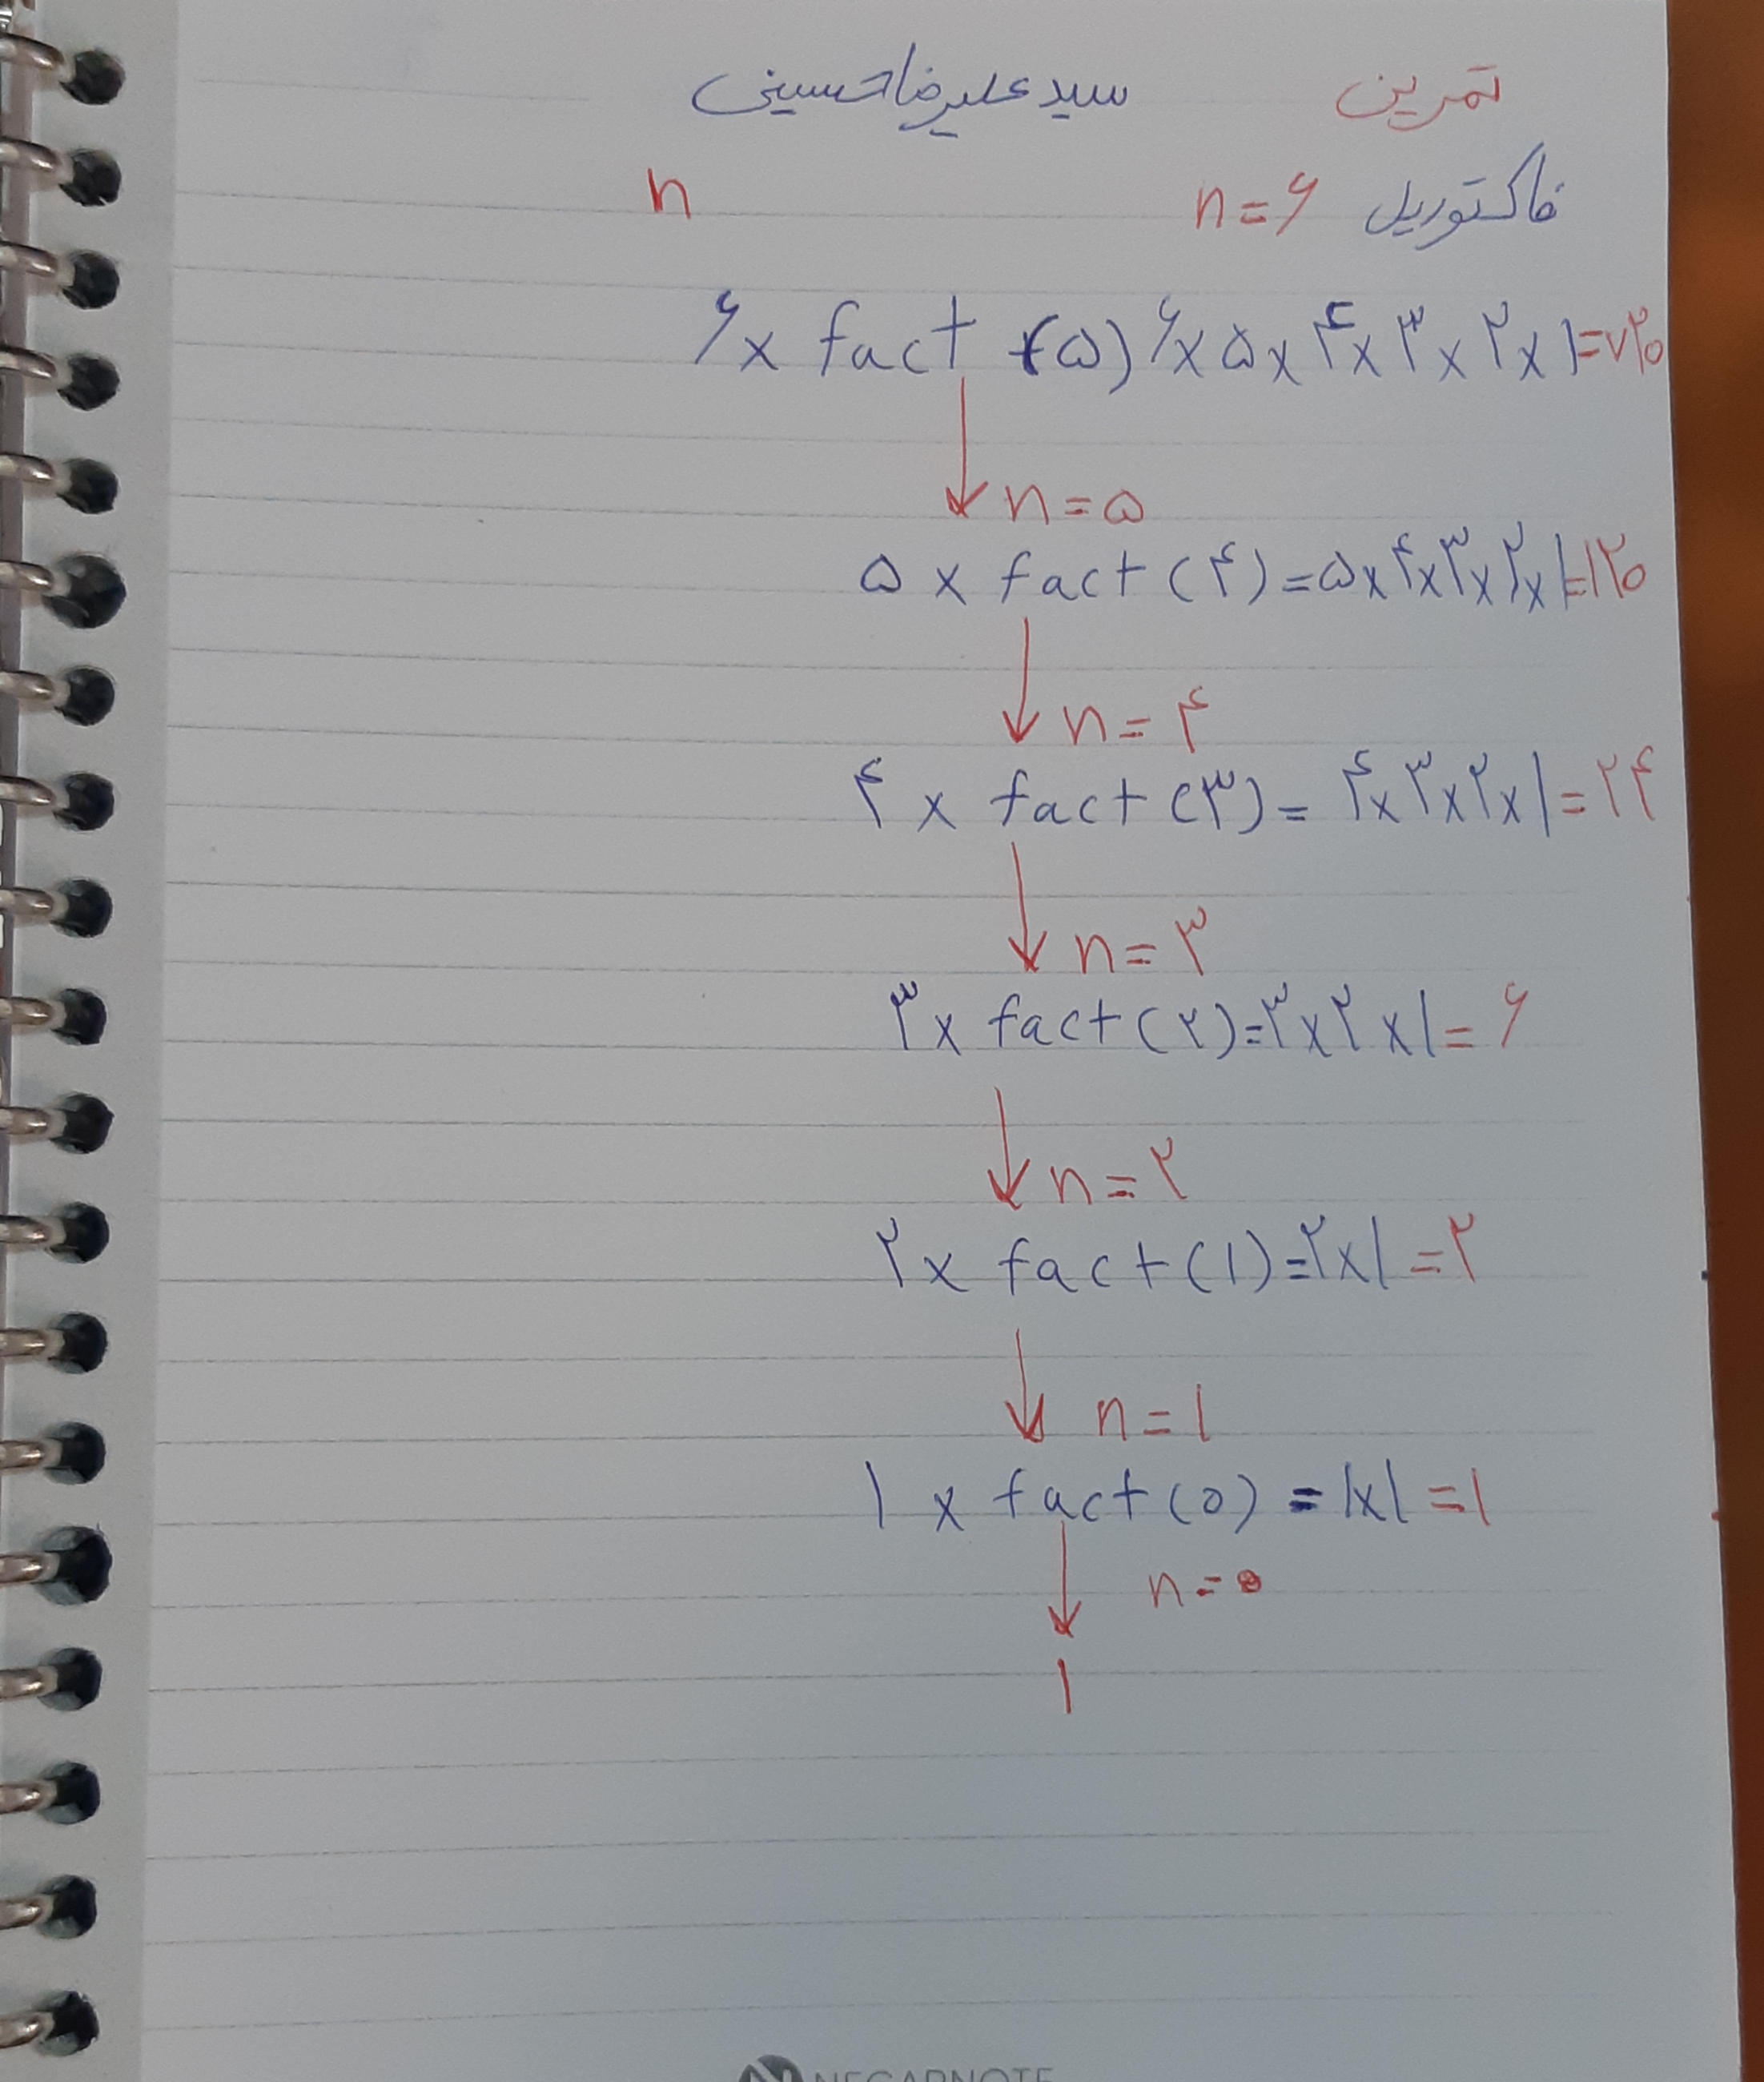 تمرین سید علیرضا حسینی
فاکتوریل n=۶ n
۶x fact (۵) ۶x۵x۴x۳x۲x۱=۷۲۰
n=۵
۵ x fact (۴)=۵x۴x۳x۲x۱=۱۲۰
n=۴
۴ x fact (۳)= ۴x۳x۲x۱=۲۴
n=۳
۳x fact (۲)=۳x۲x۱=۶
n=۲
۲x fact (۱)=۲x۱=۲
n=۱
۱ x fact (۰) = ۱x۱=۱
n=۰
۱
NEGARNOTE